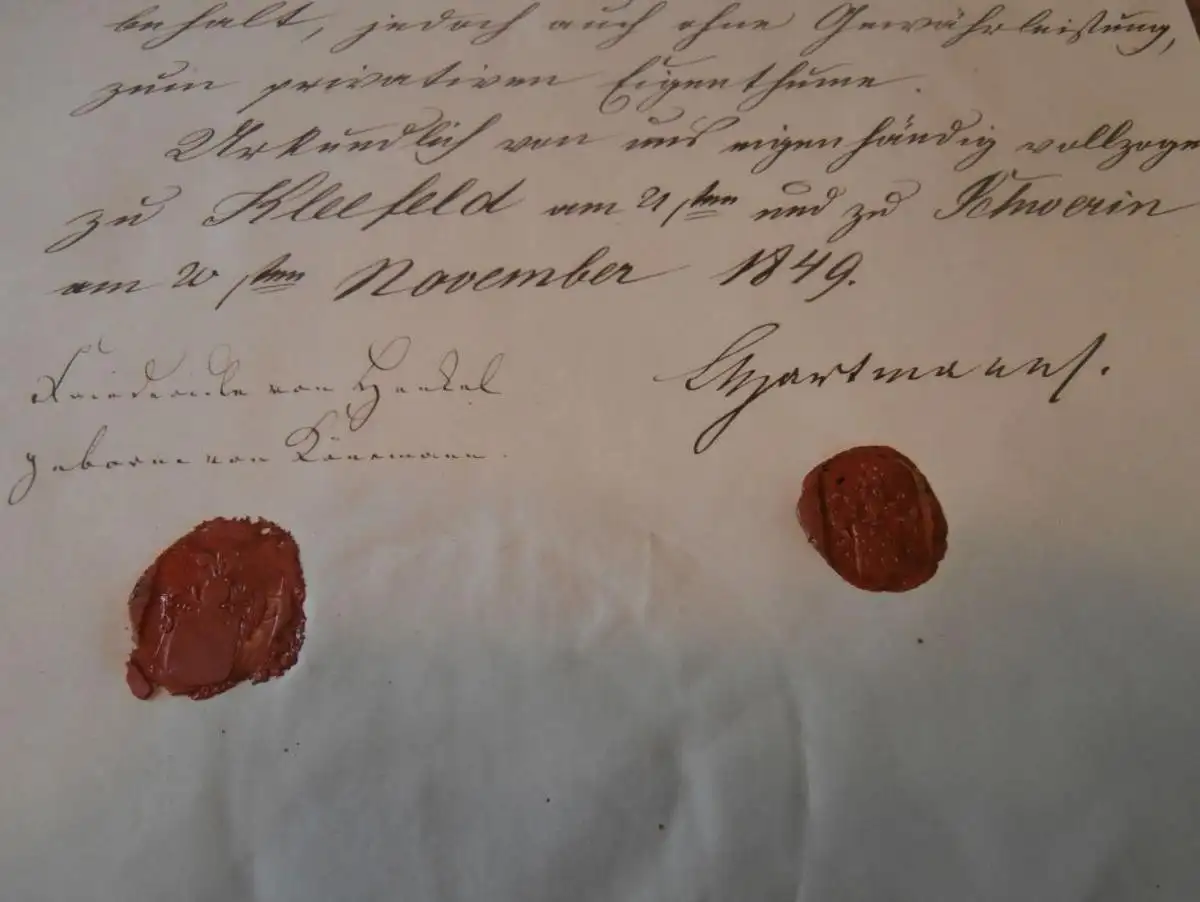 behalt, jedoch auch ohne Gewährleistung,
zum privativen Eigenthume.
Urkundlich von uns eigenhändig vollzoge
zu Kleefeld am 21sten und zu Schwerin
am 20sten November 1849.
von Henkel
geborne von Könemann.